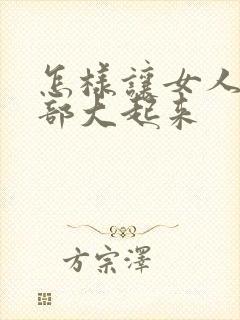 怎样讓女人
部大起来
方宗澤